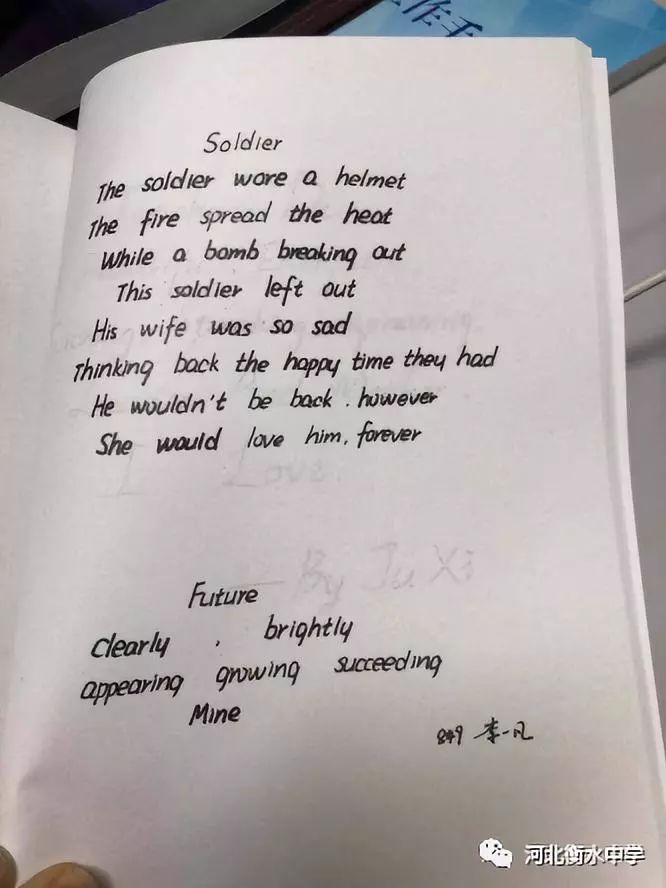 作手
Soldier
The soldier wore a helmet
The fire spread the heat
While a bomb breaking out
This soldier left out
His wife was so sad
Thinking back the happy time they had
He wouldn't be back . however
She would love him, forever
I Love
— By Ju Xi
Future
Clearly , brightly
appearing growing succeeding
Mine
849 李一凡
河北衡水中学